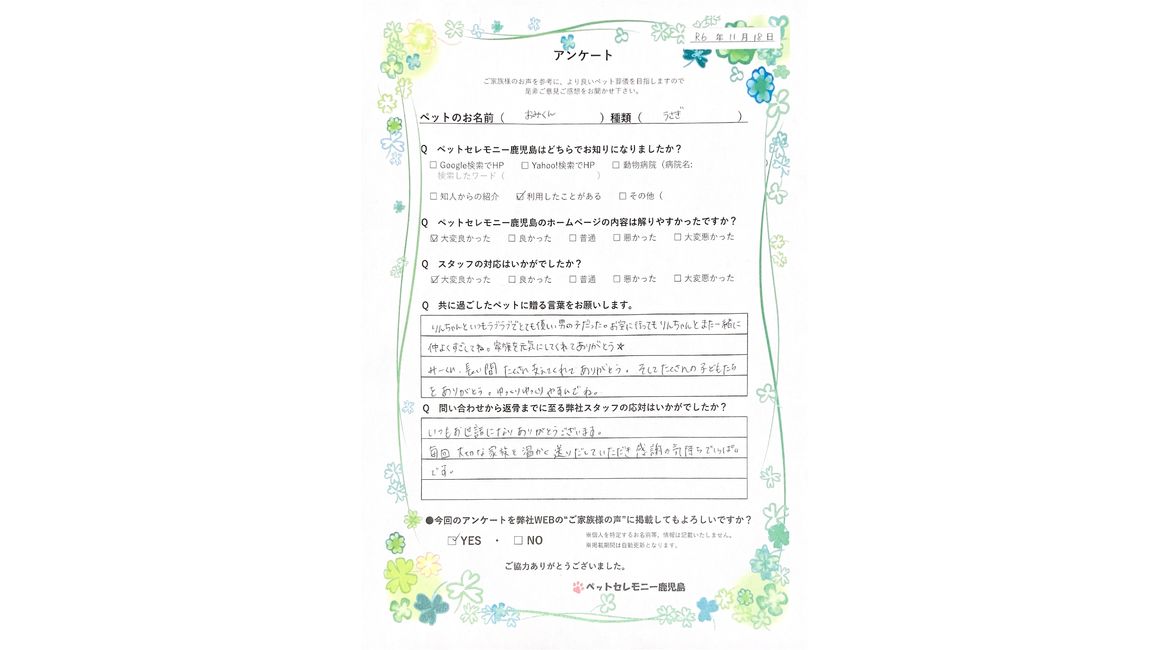 R6 年 11 月 18 日
アンケート
ご家族様のお声を参考に、より良いペット葬儀を目指しますので
是非ご意見ご感想をお聞かせ下さい。
ペットのお名前（ おみくん ）種類（ うさぎ ）
Q ペットセレモニー鹿児島はどちらでお知りになりましたか？
☐ Google検索でHP ☐ Yahoo!検索でHP ☐ 動物病院（病院名:
検索したワード（ ）
☐ 知人からの紹介 ☑ 利用したことがある ☐ その他（
Q ペットセレモニー鹿児島のホームページの内容は解りやすかったですか？
☑ 大変良かった ☐ 良かった ☐ 普通 ☐ 悪かった ☐ 大変悪かった
Q スタッフの対応はいかがでしたか？
☑ 大変良かった ☐ 良かった ☐ 普通 ☐ 悪かった ☐ 大変悪かった
Q 共に過ごしたペットに贈る言葉をお願いします。
りんちゃんといつもラブラブでとても優しい男の子だった。お空に行ってもりんちゃんとまた一緒に
仲よくすごしてね。家族を元気にしてくれてありがとう★
みーくん、長い間 たくさん支えてくれて ありがとう。そしてたくさんの子どもたち
を ありがとう。ゆっくりゆっくり やすんでね。
Q 問い合わせから返骨までに至る弊社スタッフの応対はいかがでしたか？
いつもお世話になり ありがとうございます。
毎回 大切な家族を 温かく 送りだしていただき 感謝の気持ちでいっぱい
です。
●今回のアンケートを弊社WEBの“ご家族様の声”に掲載してもよろしいですか？
☑ YES ・ ☐ NO
※個人を特定するお名前等、情報は記載いたしません。
※掲載期間は自動更新となります。
ご協力ありがとうございました。
ペットセレモニー鹿児島